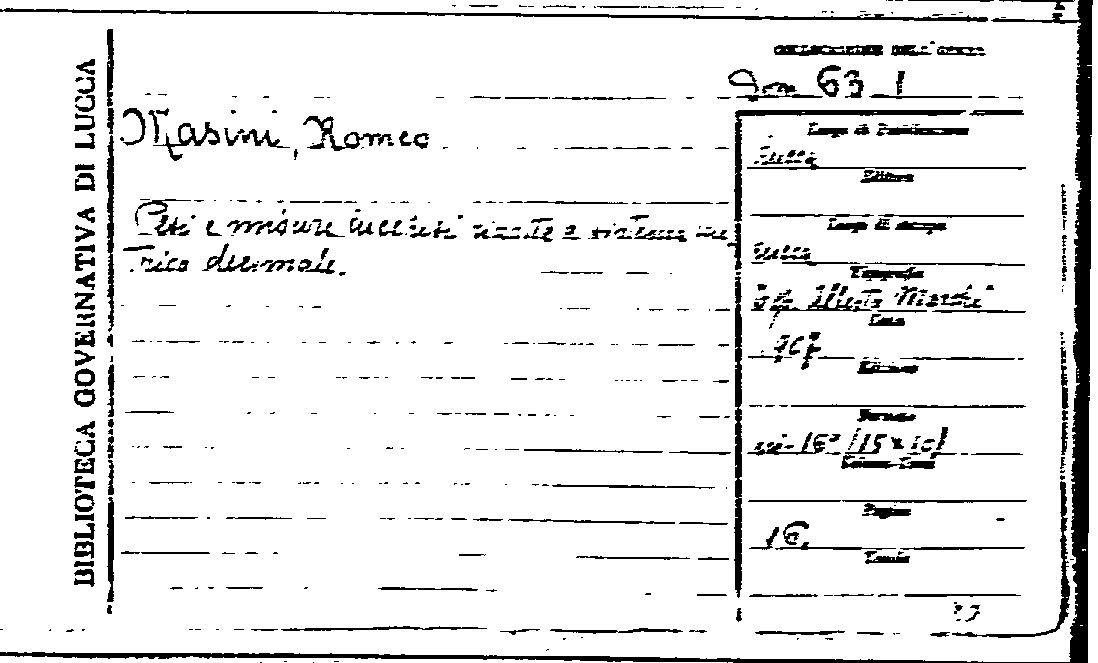 BIBLIOTECA GOVERNATIVA DI LUCCA
COLLOCAZIONE DELL'OPERA
63 1
Masini, Romeo
Pesi e misure lucchesi ridotte a sistema me
trico decimale.
Luogo di Pubblicazione
Lucca
Editore
Luogo di stampa
Lucca
Tipografia
Tip. Alberto Marchi
Data
907
Edizione
Formato
in-16° (15x10)
Pagine
16.
Tavole